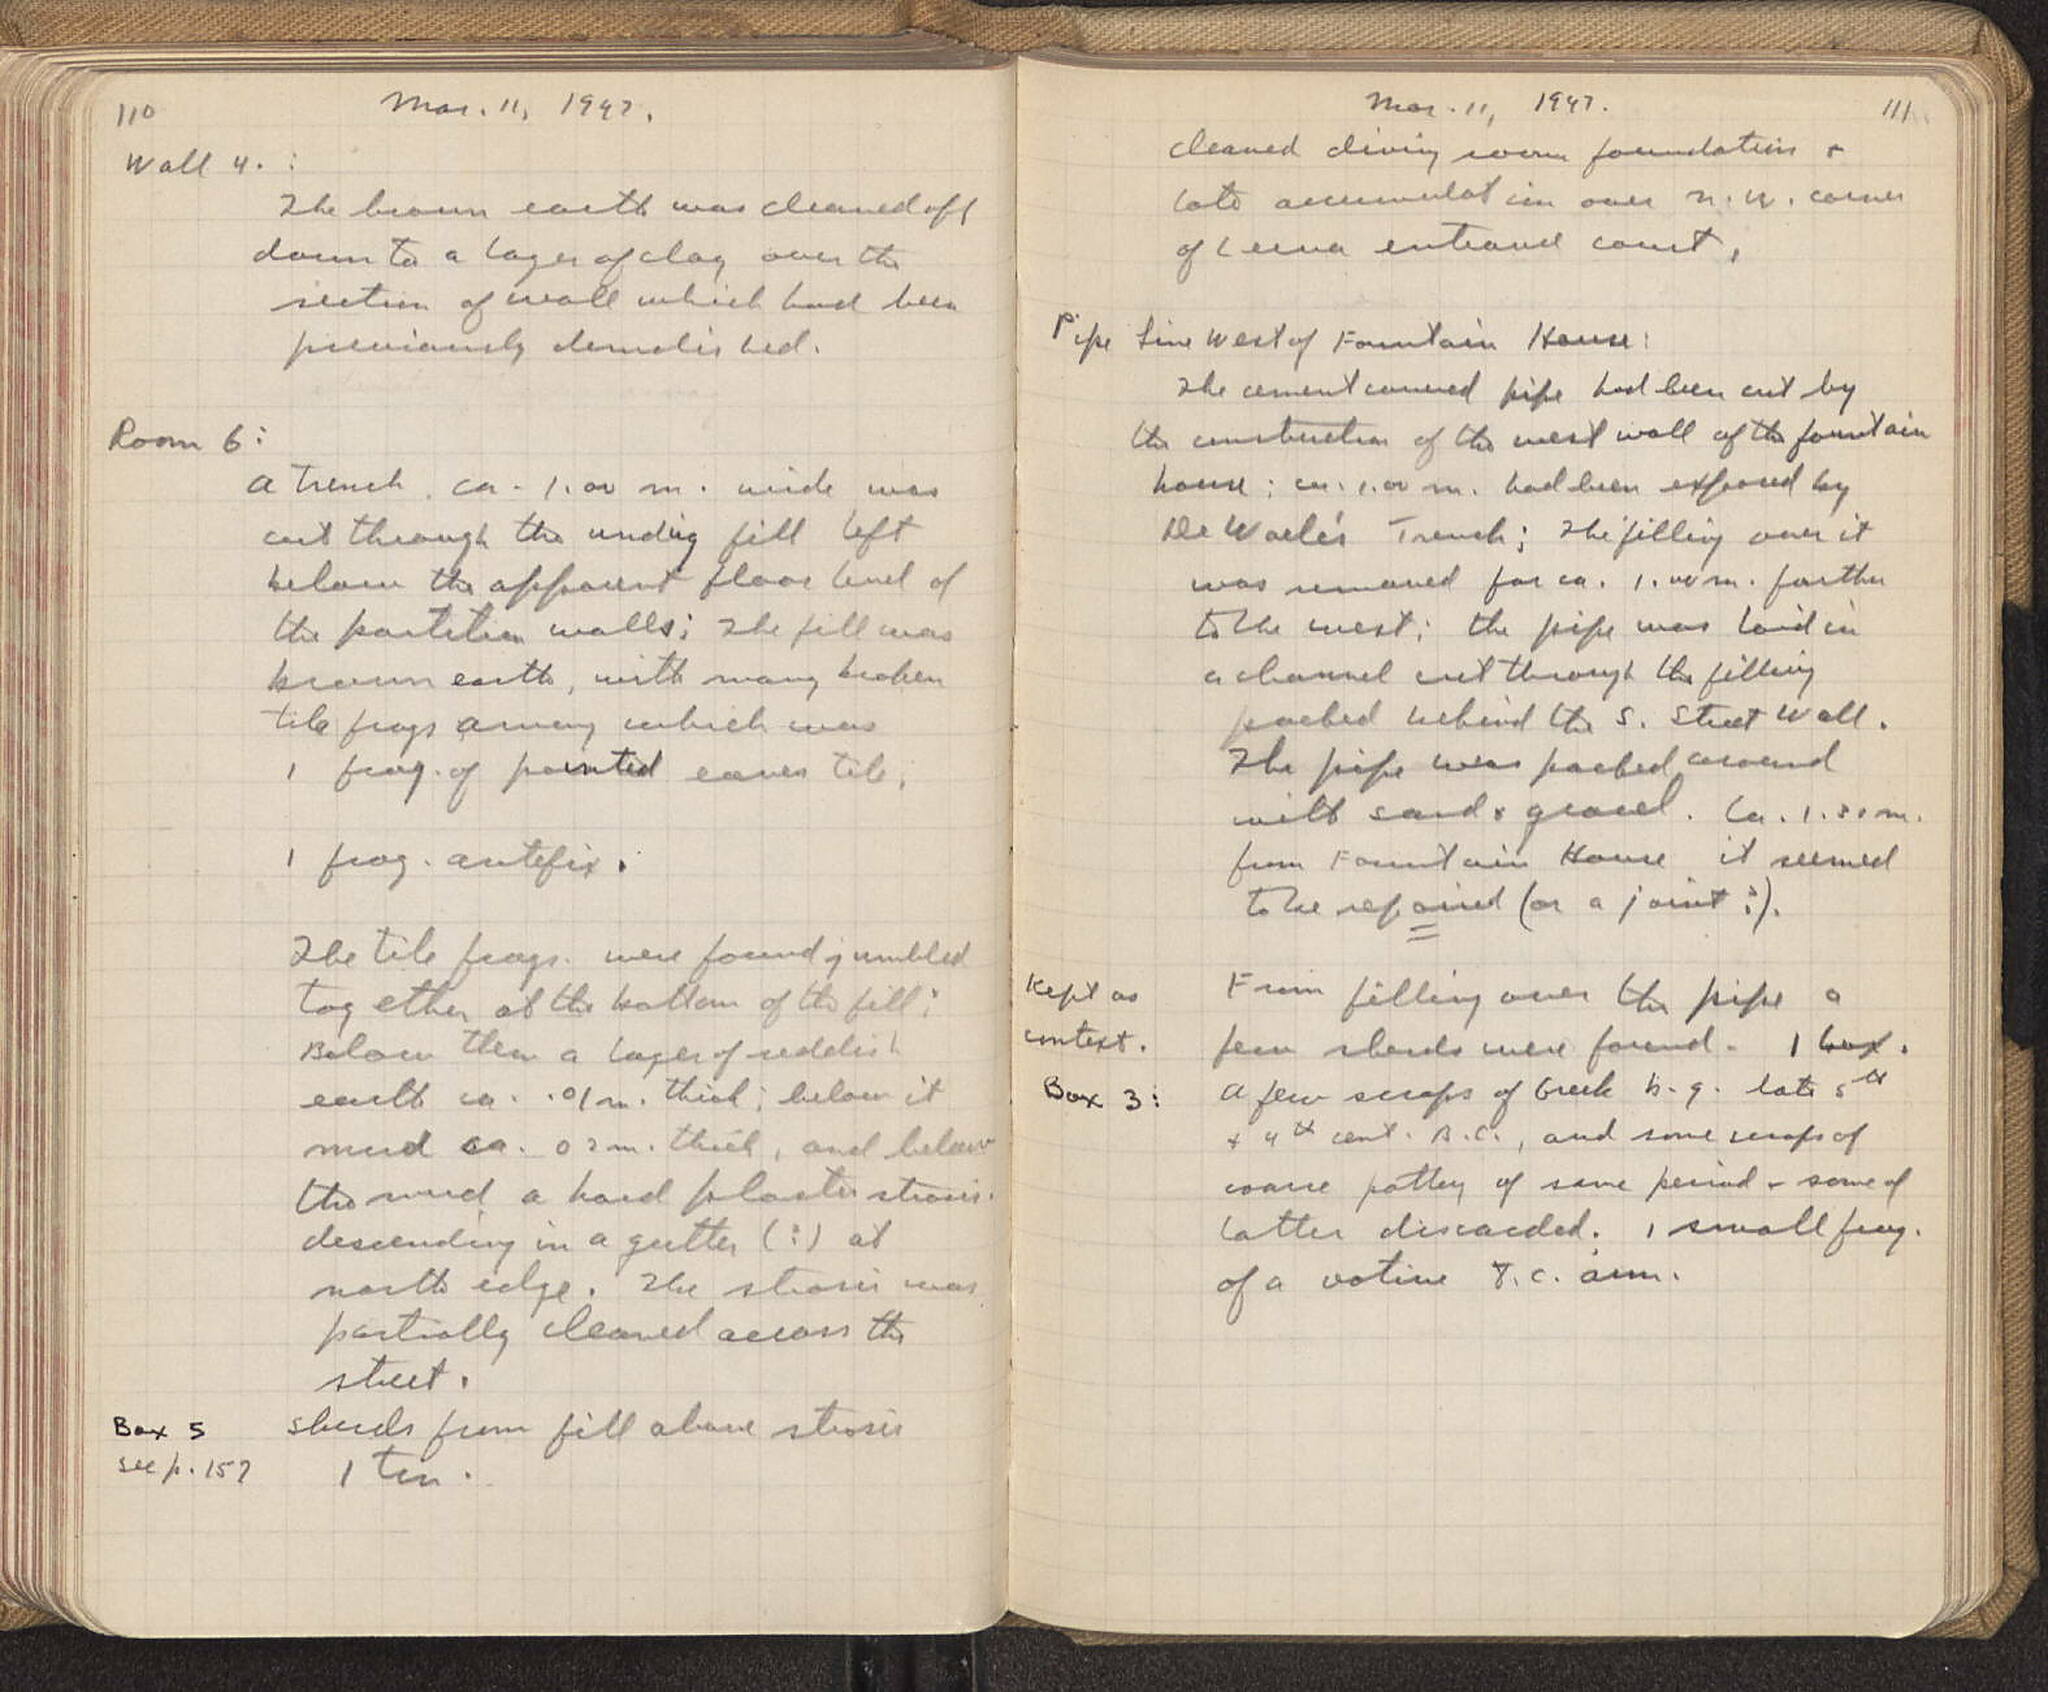 110
Mar. 11, 1947.
Wall 4. :
The brown earth was cleaned off
down to a layer of clay over the
section of wall which had been
previously demolished.
Room 6:
A trench ca. 1.00 m. wide was
cut through the undug fill left
below the apparent floor level of
the partition walls; The fill was
brown earth, with many broken
tile frags among which was
1 frag. of painted eaves tile;
1 frag. antefix.
The tile frags. were found jumbled
together at the bottom of the fill;
Below them a layer of reddish
earth ca. .01 m. thick; below it
mud ca. 02 m. thick, and below
the mud a hard plaster strosis
descending in a gutter (?) at
north edge. The strosis was
partially cleaned across the
street.
Box 5
see p. 157
sherds from fill above strosis
1 tin.
Mar. 11, 1947.
111
cleaned dining room foundation +
late accumulation over N.W. corner
of Lerna entrance court,
Pipe Line West of Fountain House:
The cement covered pipe had been cut by
the construction of the west wall of the fountain
house; ca. 1.00 m. had been exposed by
De Waele's Trench; The filling over it
was removed for ca. 1.00 m. farther
to the west; the pipe was laid in
a channel cut through the filling
packed behind the S. Street Wall.
The pipe was packed around
with sand + gravel. Ca. 1.30 m.
from Fountain House it seemed
to be repaired (or a joint ?).
Kept as
context.
From filling over the pipe a
few sherds were found - 1 box.
Box 3:
A few scraps of Greek b.g. late 5th
+ 4th cent. B.C., and some scraps of
coarse pottery of same period - some of
latter discarded. 1 small frag.
of a votive T.C. arm.